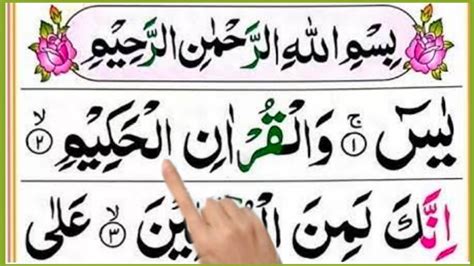 بِسْمِ اللهِ الرَّحْمٰنِ الرَّحِيْمِ
يٰسٓ ۚ ﴿١﴾ وَالْقُرْاٰنِ الْحَكِيْمِ ۙ ﴿٢﴾
اِنَّكَ لَمِنَ ﴿٣﴾ۙ عَلٰى